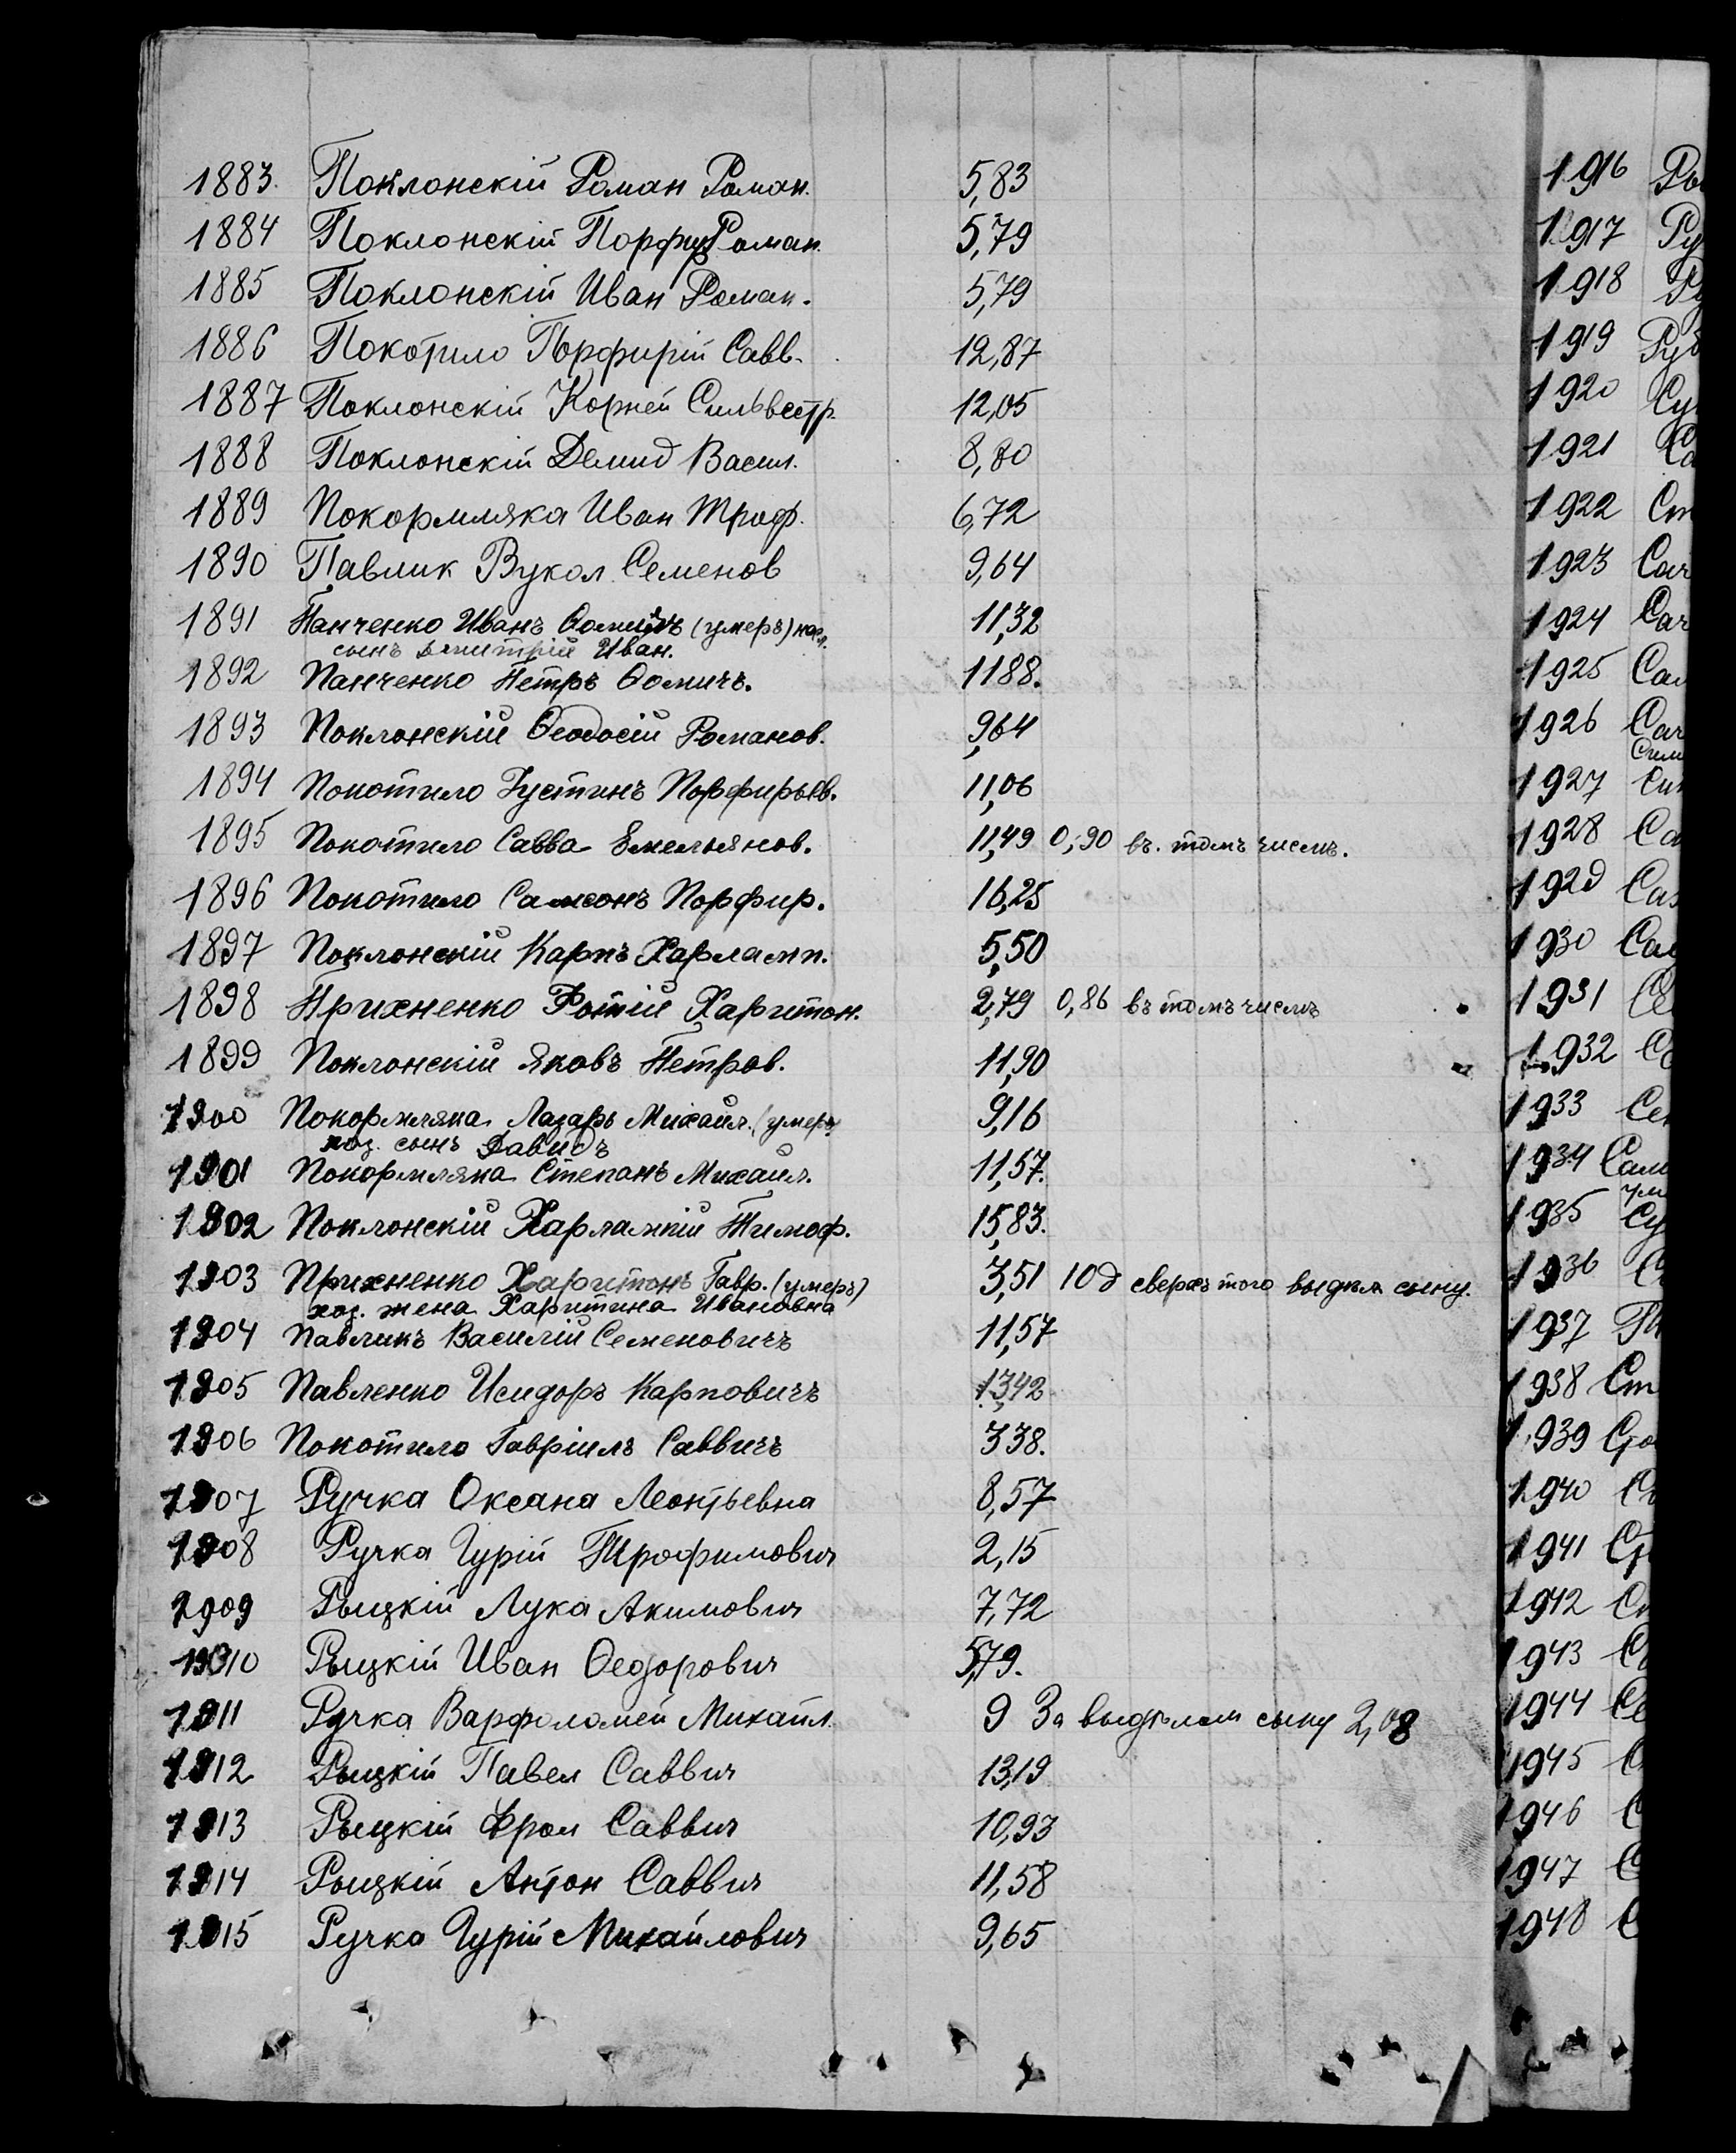 1883. Поклонскій Роман Роман. 5,83
1884 Поклонскій Порфир Роман. 5,79
1885 Поклонскій Иван Роман. 5,79
1886 Покотило Порфирій Савв. 12,87
1887 Поклонскій Корней Сильвестр. 12,05
1888 Поклонскій Демид Васил. 8,80
1889 Покормляка Иван Троф. 6,72
1890 Павлик Вукол Семенов 9,64
1891 Панченко Иванъ Ѳомичъ (умеръ) насл. 11,32
сынъ Дмитрій Иван.
1892 Панченко Петръ Ѳомичъ. 1188.
1893 Поклонскій Ѳеодосій Романов. 9,64
1894 Покотило Густинъ Порфирьев. 11,06
1895 Покотило Савва Емельянов. 11,49 0,90 въ. томъ числѣ.
1896 Покотило Самсонъ Порфир. 16,25
1897 Поклонскій Карпъ Харламп. 5,50
1898 Прихненко Фотій Харитон. 2,79 0,86 въ томъ числѣ
1899 Поклонскій Яковъ Петров. 11,90
1900 Покормляка Лазарь Михаил. (умеръ) 9,16
хоз. сынъ Давидъ
1901 Покормляка Степанъ Михаил. 11,57.
1902 Поклонскій Харлампій Тимоф. 15,83.
1903 Прихненко Харитонъ Гавр. (умеръ) 3,51 10д сверхъ того выдѣл сыну.
хоз. жена Харитина Ивановна
1904 Павликъ Василій Семеновичъ 11,57
1905 Павленко Исидоръ Карповичъ 13,42
1906 Покотило Гавріилъ Саввичъ 3 38.
1907 Ручка Оксана Леонтьевна 8,57
1908 Ручка Гурій Трофимович 2,15
1909 Рыцкій Лука Акимович 7,72
1910 Рыцкій Иван Ѳедорович 5,79.
1911 Ручка Варфоломей Михайл. 9 За выдѣлом сыну 2,08
1912 Рыцкій Павел Саввич 13,19
1913 Рыцкій Фрол Саввич 10,93
1914 Рыцкій Антон Саввич 11,58
1915 Ручка Гурій Михайлович 9,65
1916
1917 Ру
1918 Ру
1919
1920 Су
1921
1922 Ст
1923
1924
1925
1926
1927
1928 Са
1929
1930
1931
1932
1933
1934
1935 Су
1936
1937
1938 Ст
1939
1940
1941
1942
1943
1944
1945
1946 С
1947 С
1948 С